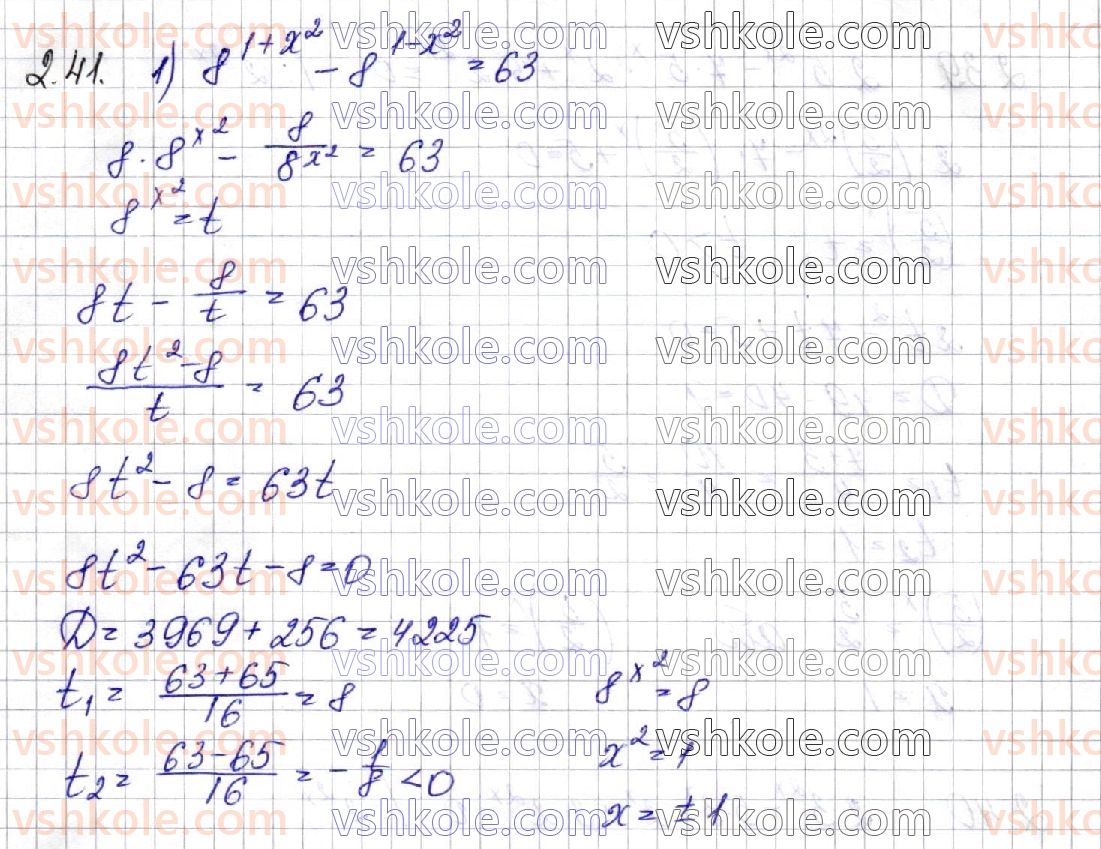 2.41. 1) 8^{1+x^2} - 8^{1-x^2} = 63
8 · 8^{x^2} - 8/8^{x^2} = 63
8^{x^2} = t
8t - 8/t = 63
(8t^2 - 8)/t = 63
8t^2 - 8 = 63t
8t^2 - 63t - 8 = 0
D = 3969 + 256 = 4225
t_1 = (63+65)/16 = 8
t_2 = (63-65)/16 = -1/8 < 0
8^{x^2} = 8
x^2 = 1
x = ±1
vshkole.com